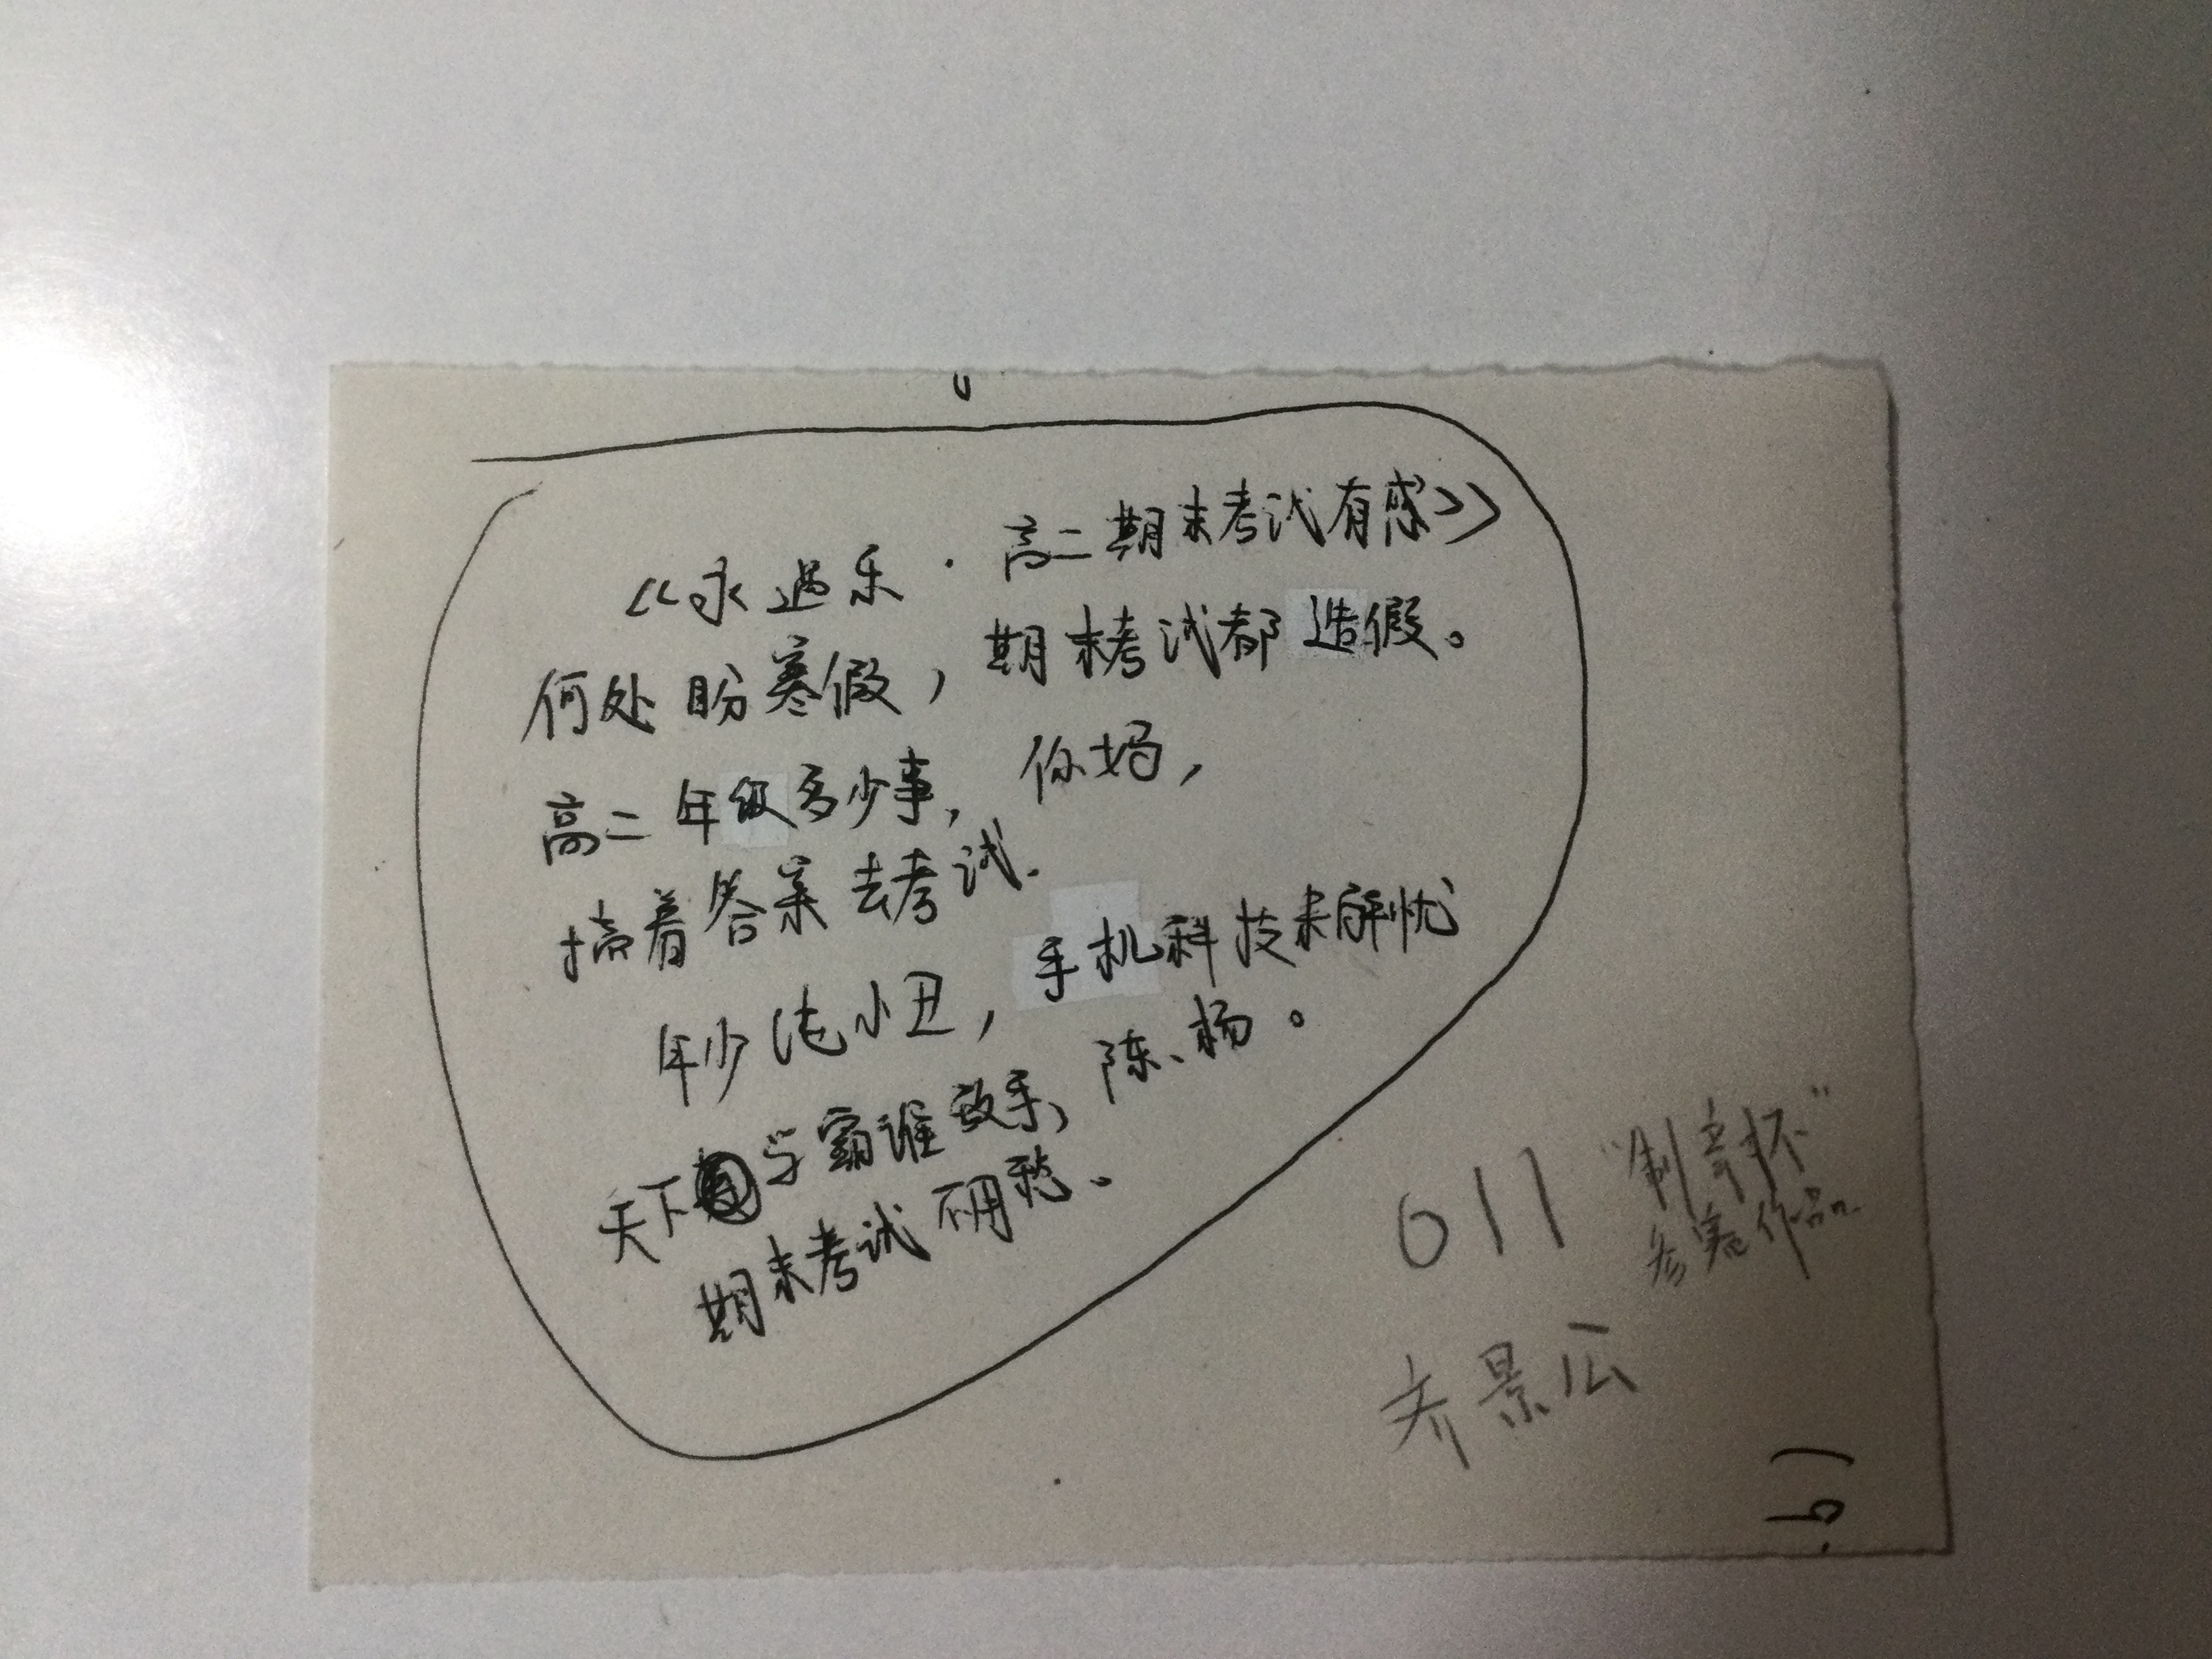 《永遇乐·高二期末考试有感》
何处盼寒假，期末考试都造假。
高二年级多少事，你妈，
搞着答案去考试.
年少沌小丑，手机科技来解忧
天下学霸谁敌手，陈、杨。
期末考试不用愁、
011 "制章杯"
参赛作品.
齐景公